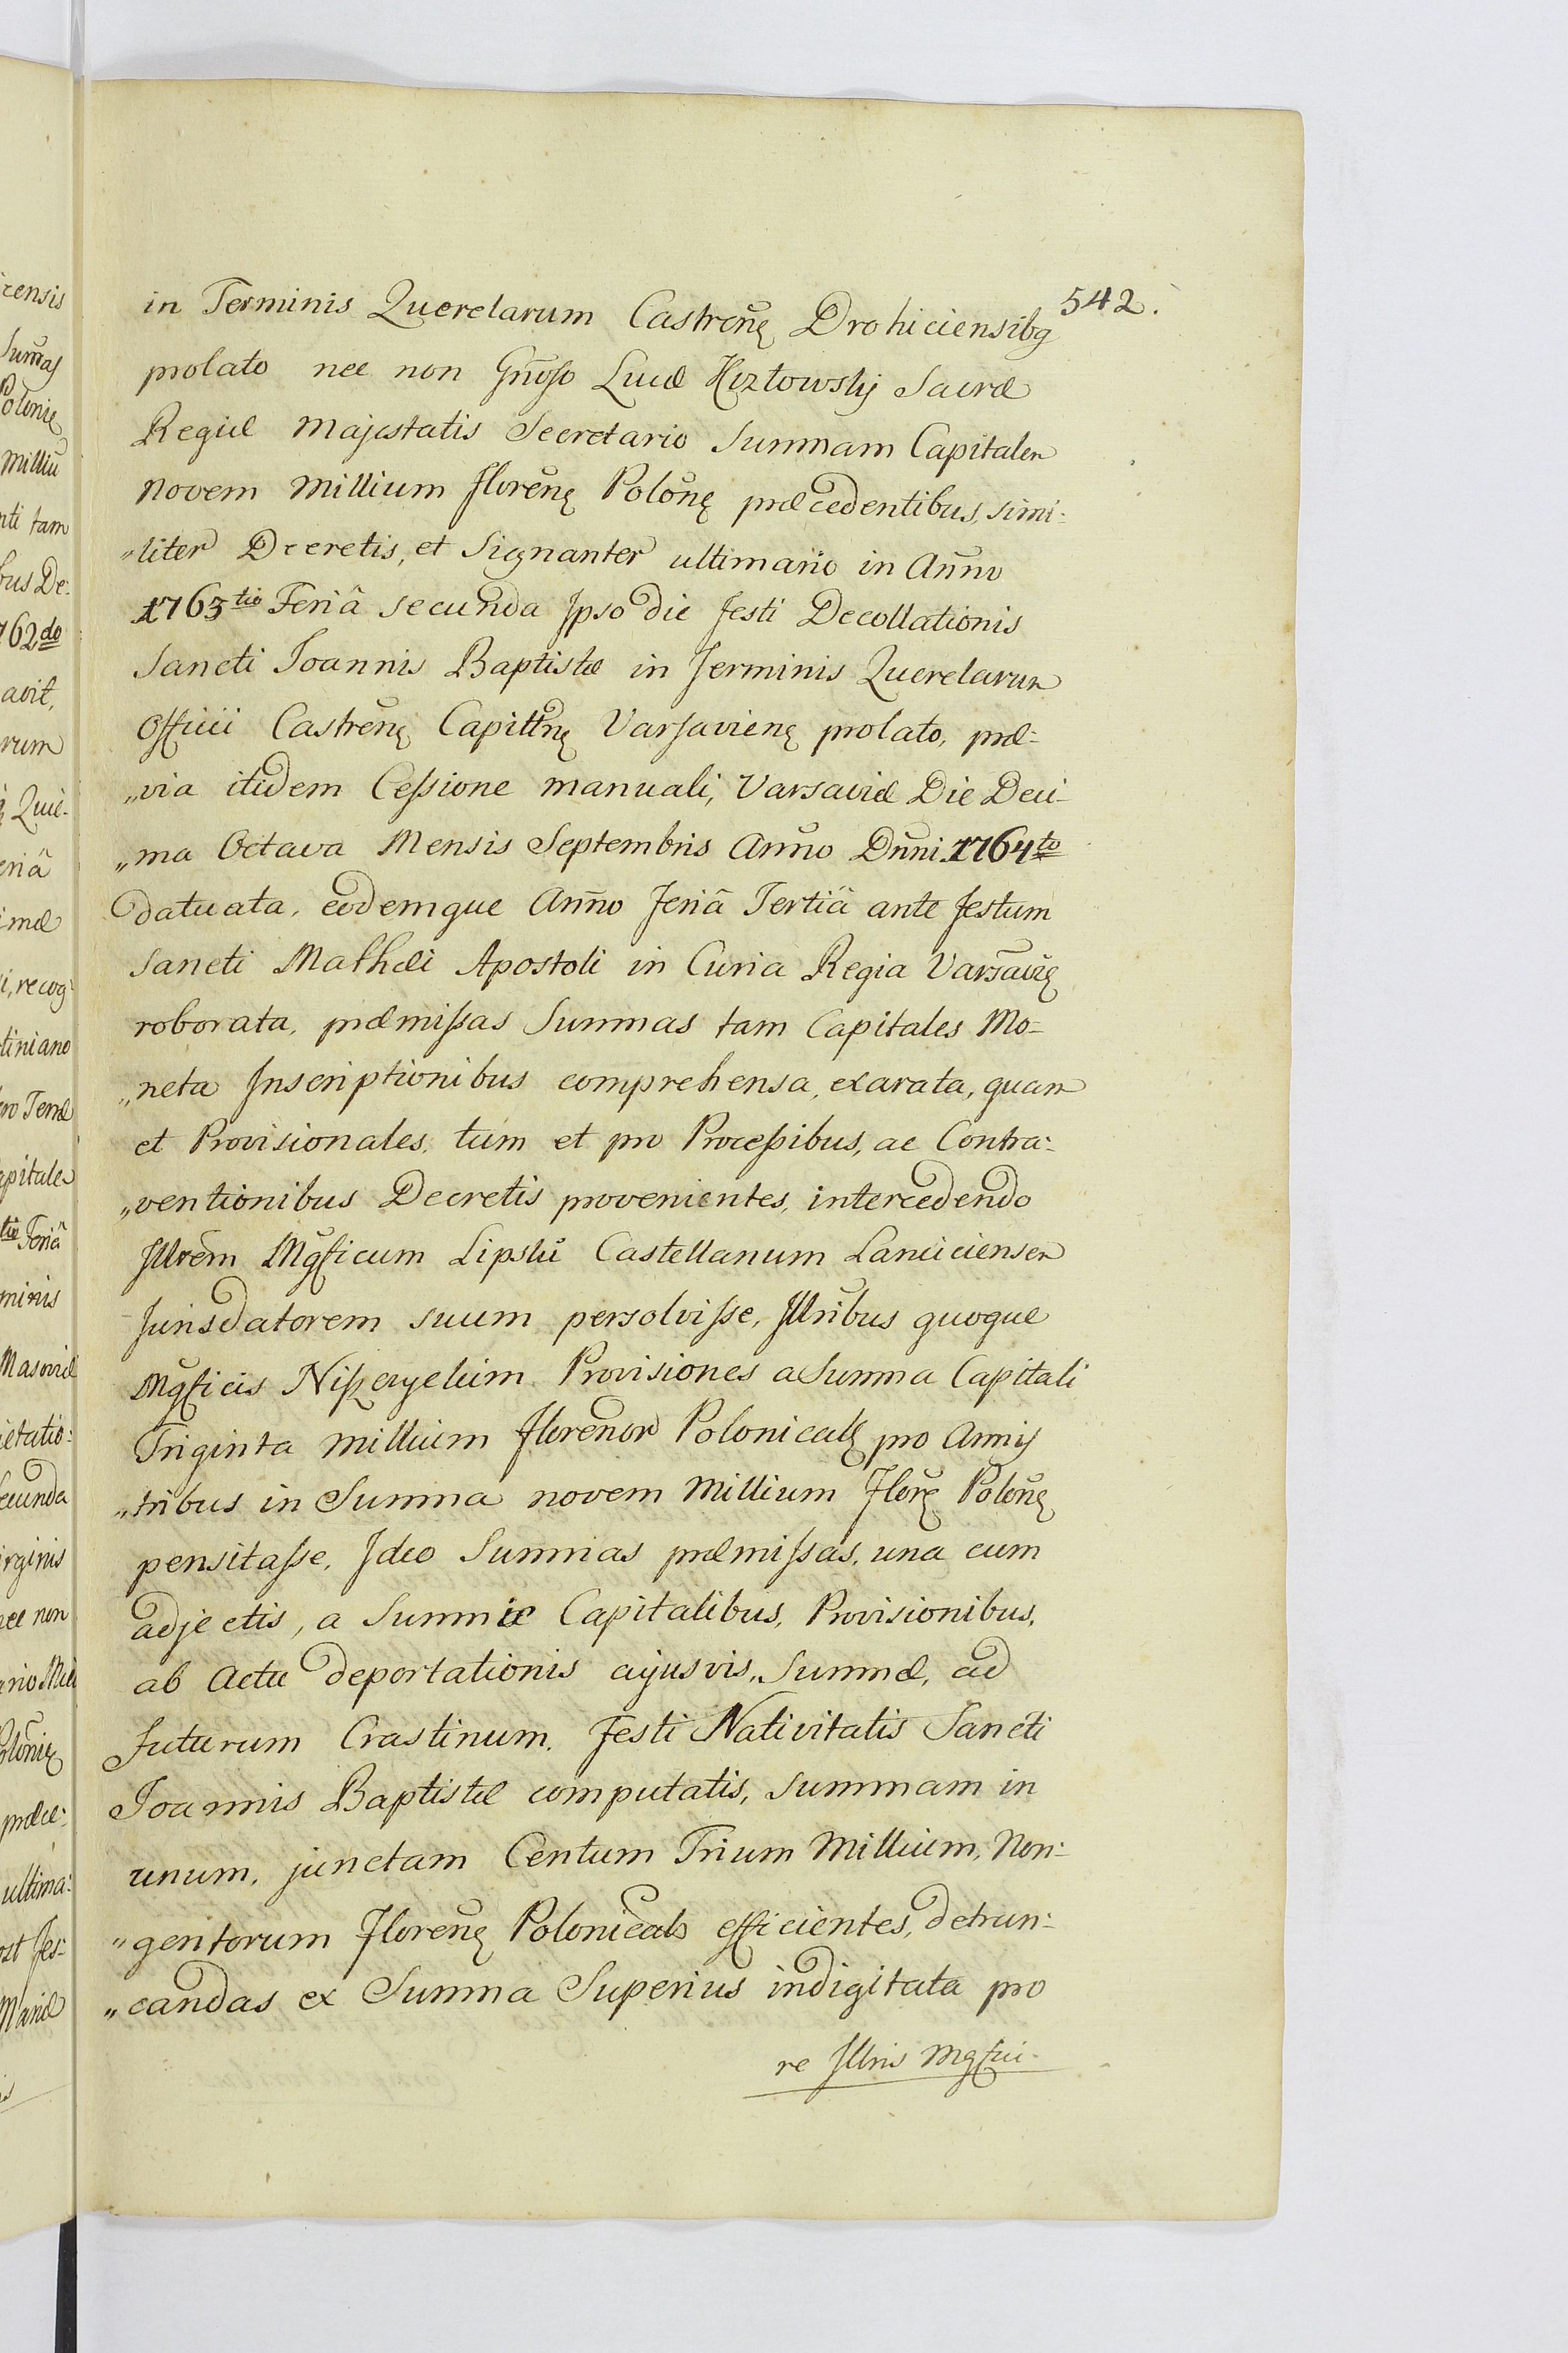 542.
in Terminis Querelarum Castrenę Drohiciensibg
prolato nec non Gn̄oso Lucæ Kozłowskj Sacræ
Regiæ Majestatis Secretario Summam Capitalem
Novem Millium Florenę Polonę præcedentibus, simi:
„liter Decretis, et Signanter ultimario in An̄no
1763tio Feriâ secunda Ipso die Festi Decollationis
Sancti Joannis Baptistæ in Terminis Querelarum
Officii Castrenę Capittnę Varsavienę prolato, præ=
„via itidem Cessione manuali, Varsaviæ Die Deci-
„ma Octava Mensis Septembris An̄no Dn̄ni 1764to
datuata, eodemque An̄no Feriâ Tertiâ ante Festum
Sancti Mathæi Apostoli in Curia Regia Varsavię
roborata, præmissas Summas tam Capitales Mo=
„neta Inscriptionibus comprehensa, exarata, quam
et Provisionales, tum et pro Processibus, ac Contra:
„ventionibus Decretis provenientes, intercedendo
Illrem Mgficum Lipskū Castellanum Lanciciensem
Jurisdatorem suum persolvisse, Illribus quoque
Mgficis Niszczyckim Provisiones a Summa Capitali
Triginta Millium Florenor Polonicalę pro Annis
„tribus in Summa novem Millium Florę Polonę
pensitasse, Ideo Summas præmissas, una cum
adjectis, a Summis Capitalibus, Provisionibus,
ab Actu deportationis cujusvis, Summæ, ad
futurum Crastinum, Festi Nativitatis Sancti
Joannis Baptistæ computatis, summam in
unum, junctam Centum Trium Millium, Non:
„gentorum Florenę Polonicalę efficientes, detrun:
„candas ex Summa Superius indigitata pro
re Illris Mgfici